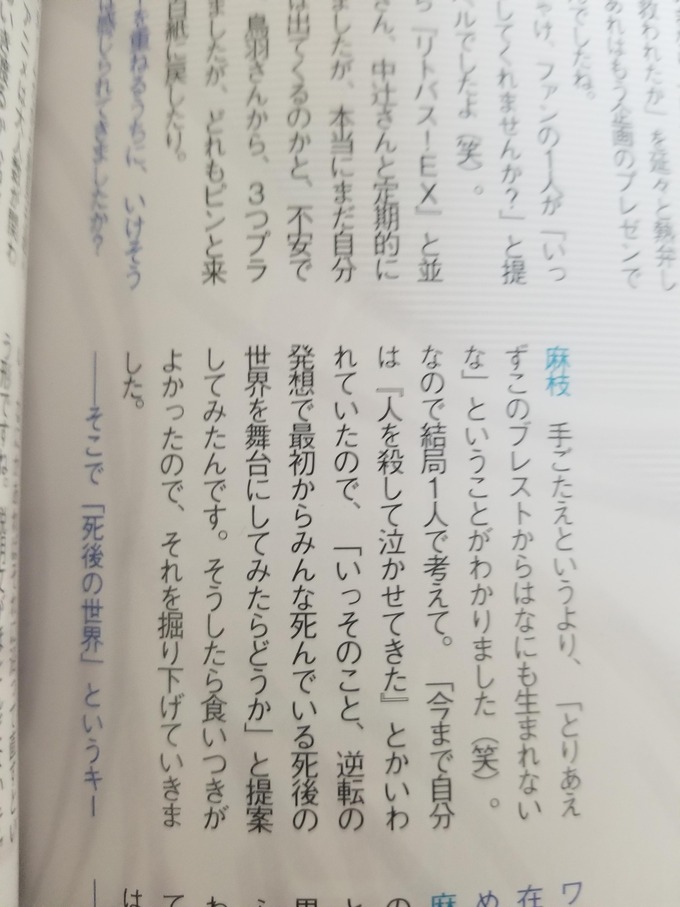 救われたか」を延々と熱弁し
あれはもう企画のプレゼンで
でしたね。
ファンの1人が「いっ
してくれませんか？」と提
ルでしたよ（笑）。
『リトバス！EX』と並
さん、中辻さんと定期的に
ましたが、本当にまだ自分
は出てくるのかと、不安で
鳥羽さんから、3つプラ
ましたが、どれもピンと来
白紙に戻したり。
を重ねるうちに、いけそう
感じられてきましたか？
麻枝　手ごたえというより、「とりあえ
ずこのブレストからはなにも生まれない
な」ということがわかりました（笑）。
なので結局1人で考えて。「今まで自分
は『人を殺して泣かせてきた』とかいわ
れていたので、「いっそのこと、逆転の
発想で最初からみんな死んでいる死後の
世界を舞台にしてみたらどうか」と提案
してみたんです。そうしたら食いつきが
よかったので、それを掘り下げていきま
した。
──そこで「死後の世界」というキー